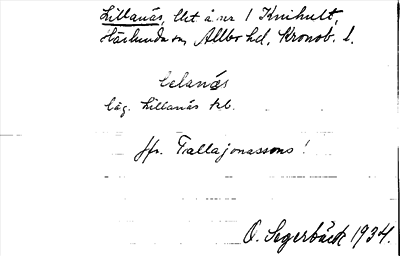 Lillanäs, lht å nr 1 Knihult,
Härlunda sn, Allbo hd, Kronob. l.
lelanäs
läg. Lillanäs trl.
Jfr. Tallajonassons!
O. Segerbäck 1934.